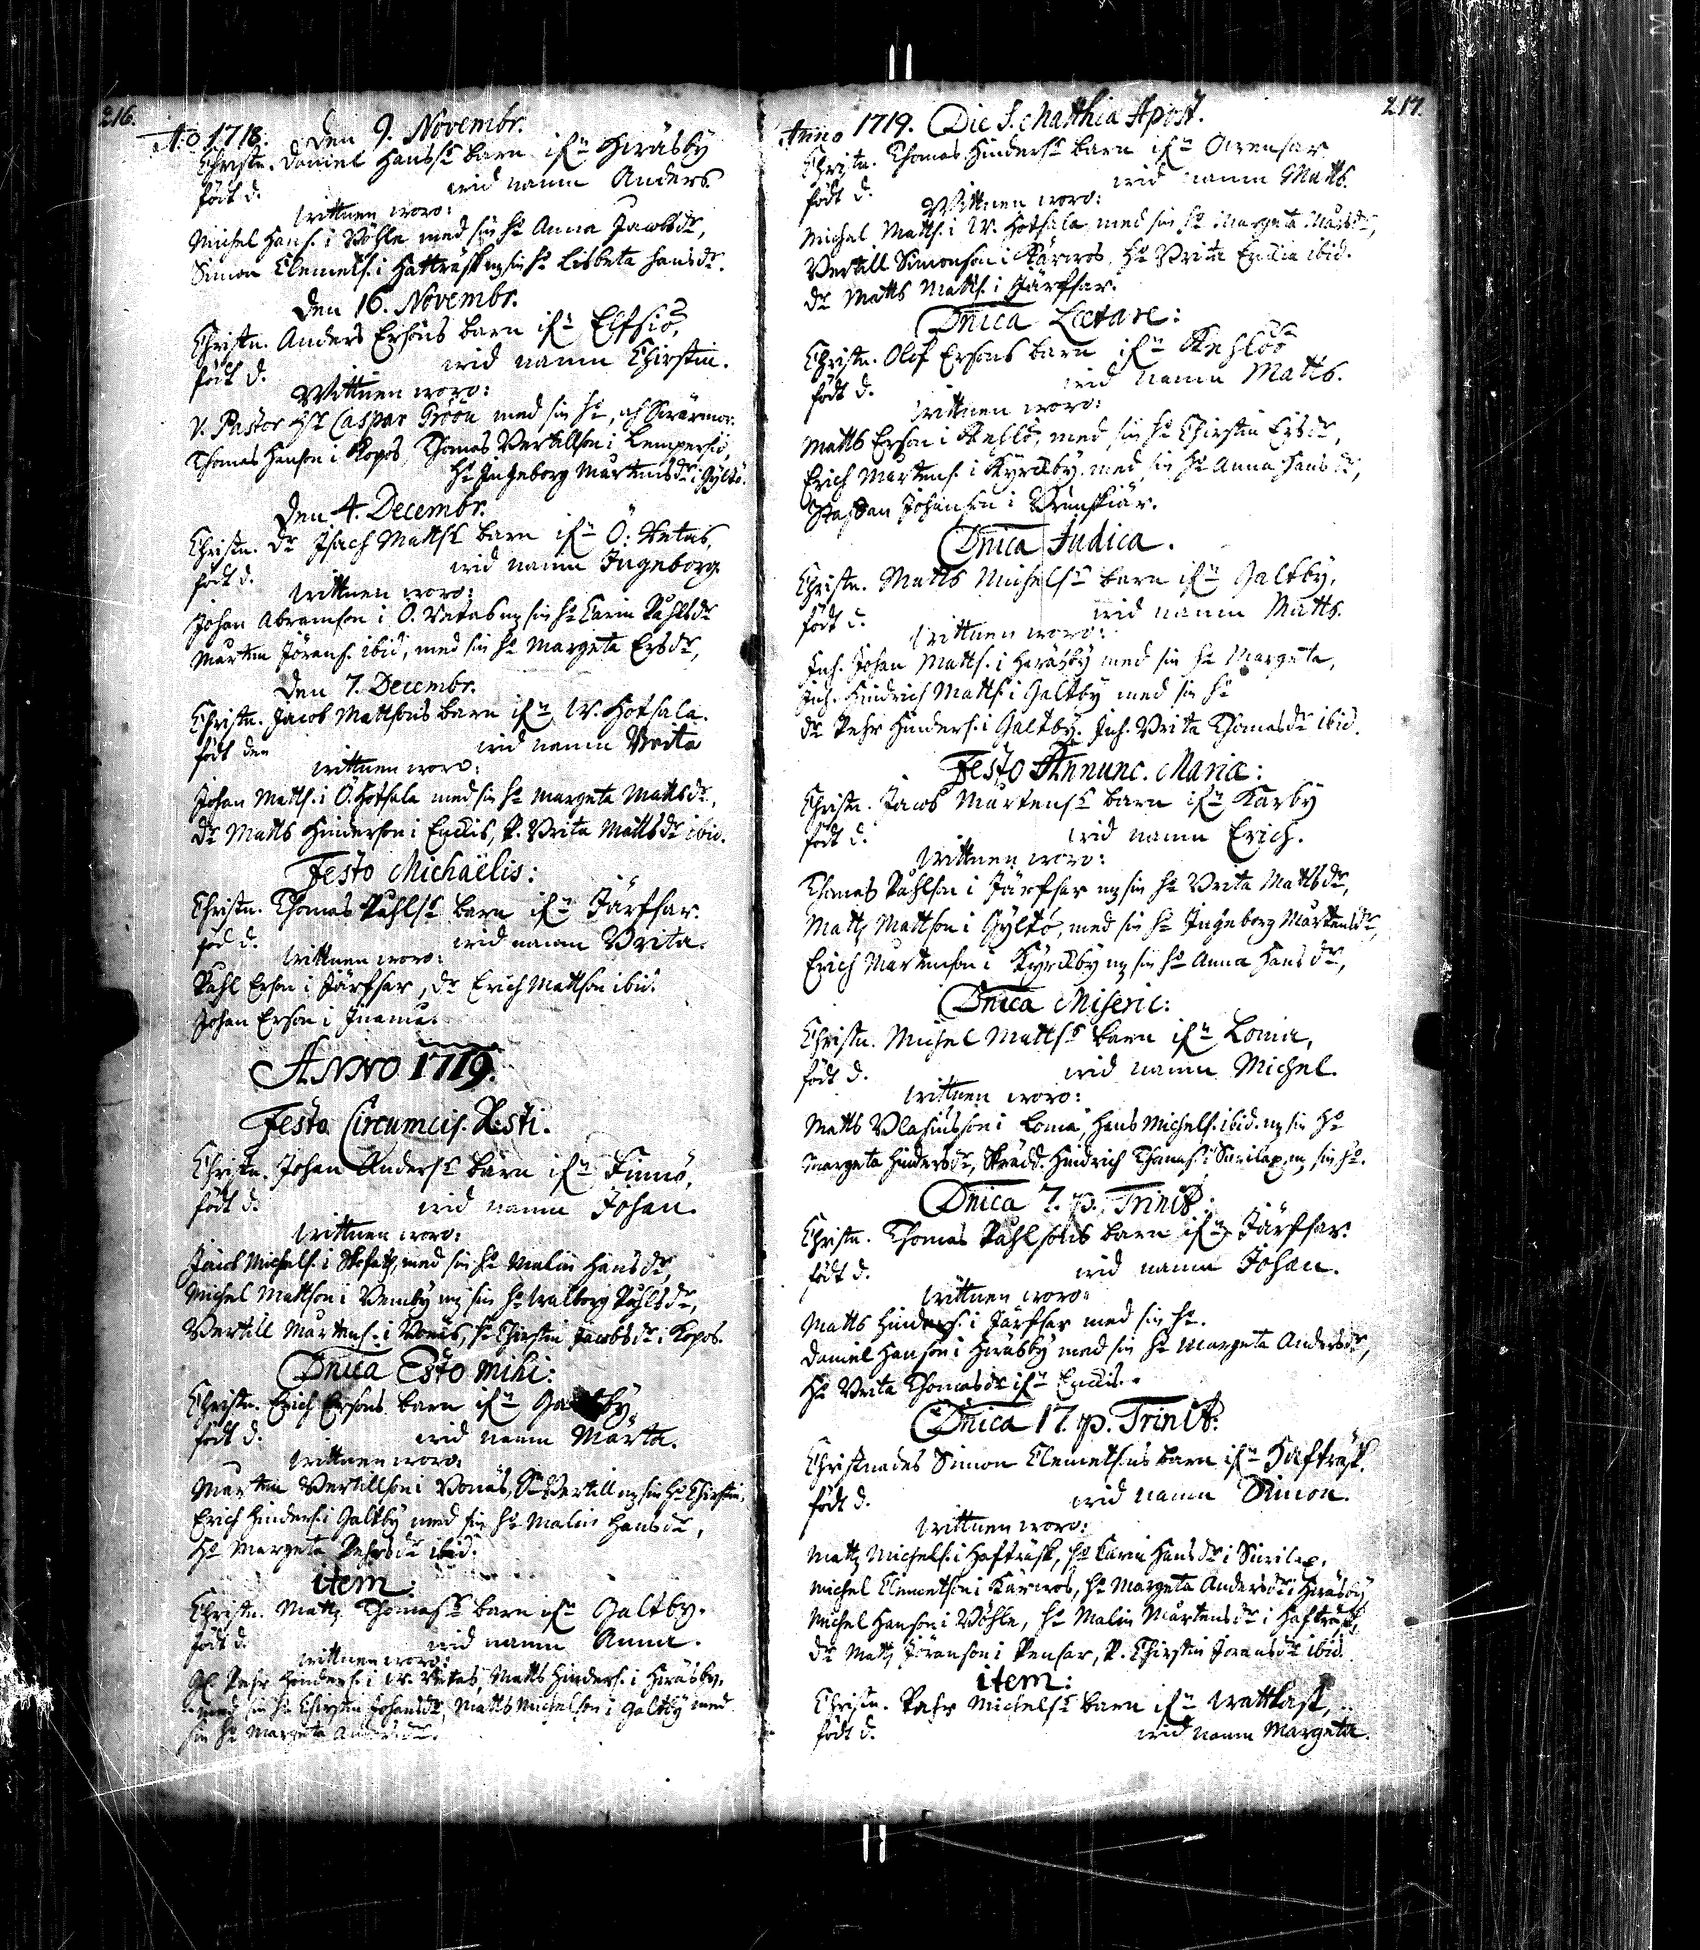 216.
A:o 1718. Den 9. Novembr.
Christn. Daniel Hanss barn ifn Heräsby
födt d. wid namn Anders.
wittnen woro:
Michel Hans. i Böhle med sin h. Anna Jacobsdr,
Simon Clemets. i Hafträsk m sin h. Lisbeta Hansdr.
Den 16. Novembr.
Christn. Anders Ersons barn ifn Elfsiö,
födt d. wid namn Chirstin.
Wittnen woro:
V. Pastor Hr Caspar Gröön med sin h.,
Thomas Hanson i Kopos, Thomas Bertillson i Lempersiö,
H. Ingeborg Mårtensdr i Gyltö.
Den 4. Decembr.
Christn. Dr Isach Matts barn ifn Ö: Retais,
födt d. wid namn Ingeborg.
wittnen woro:
Johan Abramson i Ö. Retais m sin h. Carin Påhlsdr
Mårten Jörans. ibid, med sin h. Margeta Ersdr,
Den 7. Decembr.
Christn. Jacob Mattsons barn ifn W. Hofsala.
födt den wid namn Brita
wittnen woro:
Johan Matts. i Ö. Hofsala med sin h. Margeta Mattsdr,
Dr Matts Hinderson i Enckis, P. Brita Mattsdr ibid.
Festo Michaëlis:
Christn. Thomas Påhls barn ifn Järfsar.
föd d. wid namn Brita.
wittnen woro:
Påhl Erson i Järfsar, Dr Erich Mattson ibid.
Johan Erson i
ANNO 1719.
Festo Circumcis. Xsti.
Christn. Johan Anders barn ifn Finnö,
födt d. wid namn Johan.
wittnen woro:
Jacob Michels. i med sin h. Malin Hansdr,
Michel Mattson i Benby m sin h. Walborg Påhlsdr,
Bertill Mårtens. i Bonäs, h. Chirstin Jacobsdr i Kopos.
Dnica Esto mihi:
Christn. Erich Ersons barn ifn
födt d. wid namn Märta.
wittnen woro:
Mårten Bertillson i Bonäs, Bertill m sin h. Chirstin,
Erich Hinders. i Galtby med sin h. Malin Hansdr,
H. Margeta Pehrsdr ibid.
item
Christn. Matz Thomass barn ifn Galtby.
födt d. wid namn Anna.
wittnen woro:
Pehr Hinders. i W. Retais, Matts Hinders. i Heräsby,
med sin h. Chirstin Johansdr, Matts Michelson i Galtby med
sin h. Margeta Andersdr.
217.
Anno 1719. Die S. Matthia Apost.
Christn. Thomas Hinders barn ifn Owensar
födt d. wid namn Matts.
Wittnen woro:
Michel Matts. i W. Hofsala med sin h. Margeta Matsdr,
Bertill Simonson i Kärwos, H. Brita ibid.
Dr Matts Matts. i Järfsar.
Dnica Lætare:
Christn. Olof Ersons barn ifn
födt d. wid namn Matts.
wittnen woro:
Matts Erson i med sin h. Chirstin Ersdr,
Erich Mårtens. i Kyrckby med sin h. Anna Hansdr,
Staffan Johanson i Brunskiär.
Dnica Judica.
Christn. Matts Michels barn ifn Galtby,
födt d. wid namn Matts.
wittnen woro:
Inh. Johan Matts. i Heräsby med sin h. Margeta,
Inh. Hindrich Matts. i Galtby med sin h.
Dr Pehr Hinders. i Galtby. Inh. Brita Thomasdr ibid.
Festo Annunc. Mariæ:
Christn. Jacob Mårtens barn ifn Karby
födt d. wid namn Erich.
wittnen woro:
Thomas Påhlson i Järfsar m sin h. Brita Mattsdr,
Matz Mattson i Gyltö, med sin h. Ingeborg Mårtensdr,
Erich Mårtenson i Kyrckby m sin h. Anna Hansdr,
Dnica Miseric:
Christn. Michel Matts barn ifn Lomia,
födt d. wid namn Michel.
wittnen woro:
Matts Blasiusson i Lomia, Hans Michels. ibid. m sin h.
Margeta Hindersdr, Skrädd. Hindrich Thomas. i m sin h.
Dnica 7. p. Trinit:
Christn. Thomas Påhlsons barn ifn Järfsar.
födt d. wid namn Johan.
wittnen woro:
Matts Hinders. i Järfsar med sin h.
Daniel Hanson i Heräsby med sin h. Margeta Andersdr,
H. Brita Thomasdr ifn Enckis.
Dnica 17. p. Trinit:
Christnades Simon Clemetsons barn ifn Hafträsk.
födt d. wid namn Simon.
wittnen woro:
Matz Michels. i Hafträsk, h. Carin Hansdr i
Michel Clemetson i Kärwos, h. Margeta Andersdr i Heräsby
Michel Hanson i Böhle, h. Malin Mårtensdr i Hafträsk,
Dr Matz Jöranson i Pensar, P. Chirstin Joransdr ibid.
item:
Christn. Pehr Michels barn ifn Wattkast,
födt d. wid namn Margeta.